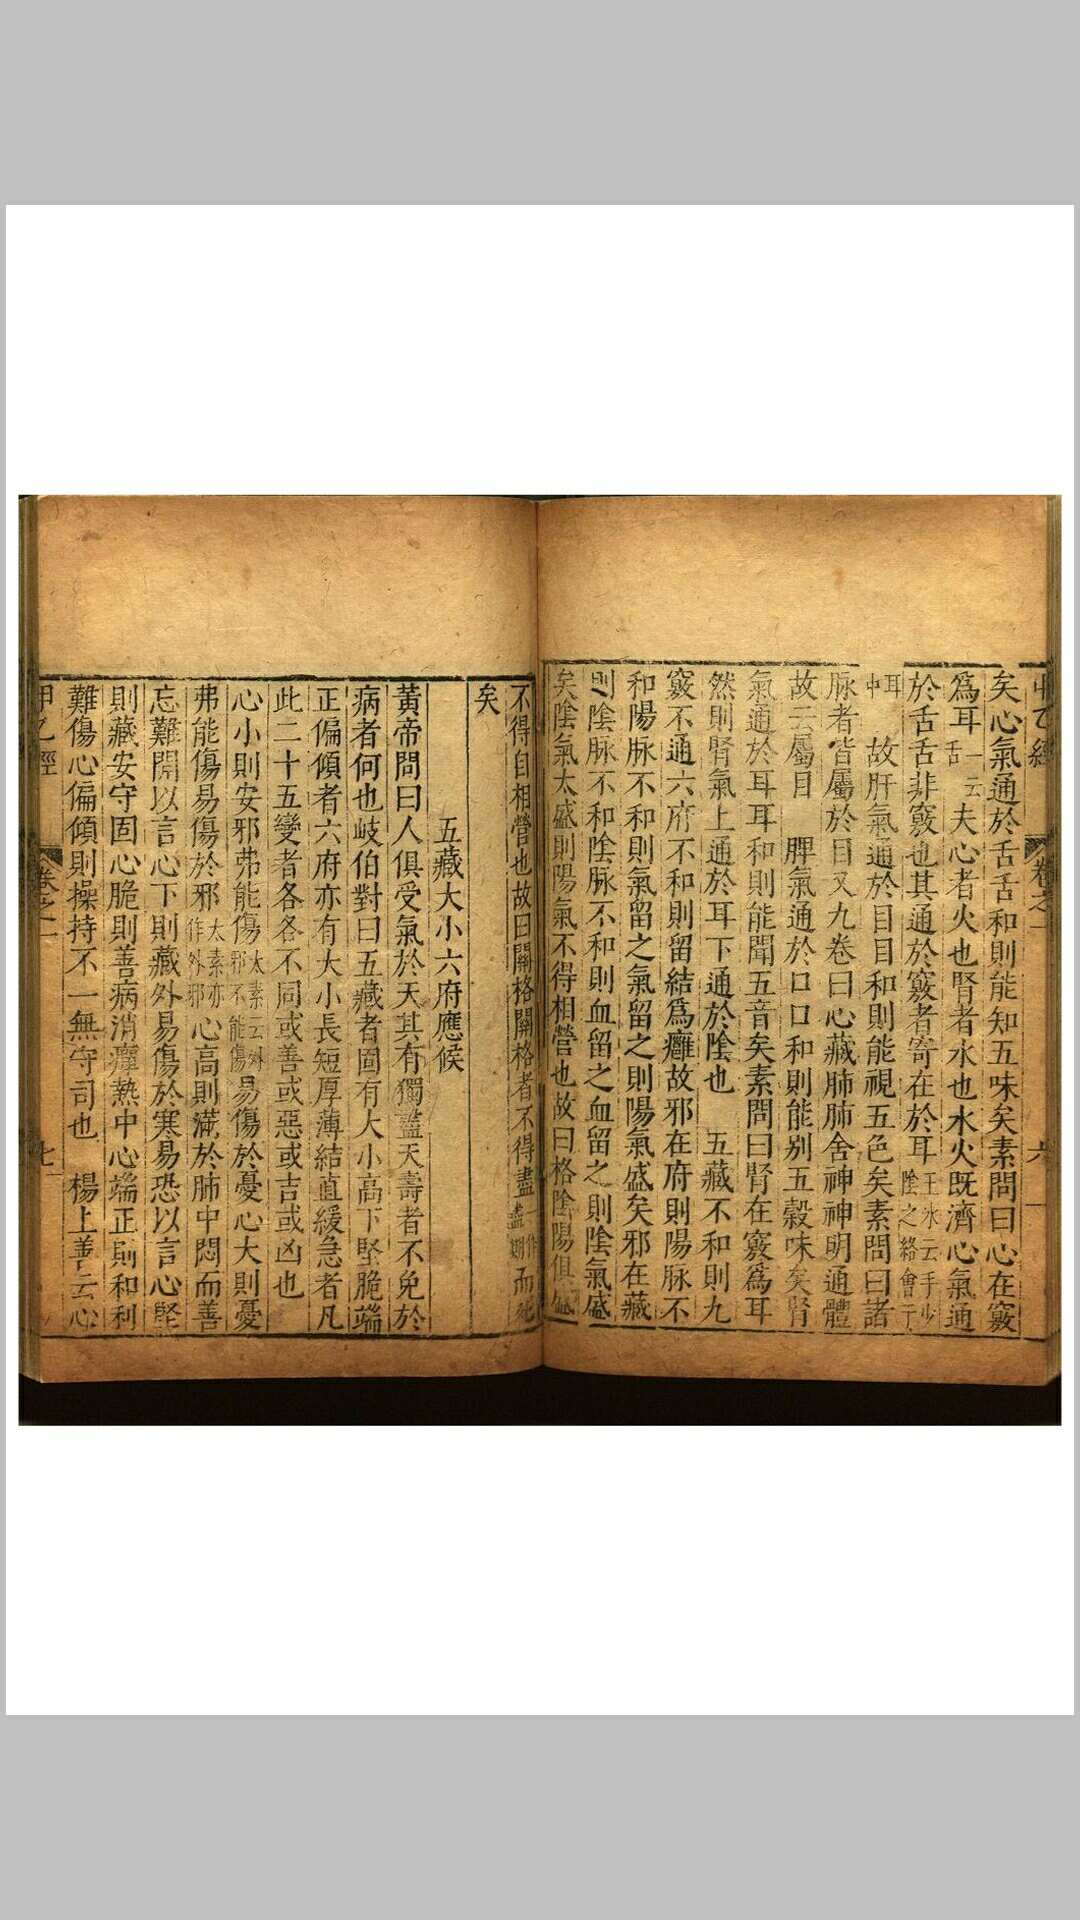 甲乙經 卷之一 六
矣心氣通於舌舌和則能知五味矣素問曰心在竅
爲耳一云舌夫心者火也腎者水也水火既濟心氣通
於舌舌非竅也其通於竅者寄在於耳王冰云手少陰之絡會于
耳中 故肝氣通於目目和則能視五色矣素問曰諸
脉者皆屬於目又九卷曰心藏肺肺舍神神明通體
故云屬目 脾氣通於口口和則能别五穀味矣腎
氣通於耳耳和則能聞五音矣素問曰腎在竅爲耳
然則腎氣上通於耳下通於陰也 五藏不和則九
竅不通六府不和則留結爲癰故邪在府則陽脉不
和陽脉不和則氣留之氣留之則陽氣盛矣邪在藏
則陰脉不和陰脉不和則血留之血留之則陰氣盛
矣陰氣太盛則陽氣不得相營也故曰格陰陽俱盛
不得自相營也故曰關格關格者不得盡一作盡期而死
矣
五藏大小六府應候
黃帝問曰人俱受氣於天其有獨盡天壽者不免於
病者何也岐伯對曰五藏者固有大小高下堅脆端
正偏傾者六府亦有大小長短厚薄結直緩急者凡
此二十五變者各各不同或善或惡或吉或凶也
心小則安邪弗能傷太素云外邪不能傷易傷於憂心大則憂
弗能傷易傷於邪太素亦作外邪心高則滿於肺中悶而善
忘難開以言心下則藏外易傷於寒易恐以言心堅
則藏安守固心脆則善病消癉熱中心端正則和利
難傷心偏傾則操持不一無守司也 楊上善云心
甲乙經 卷之一 七